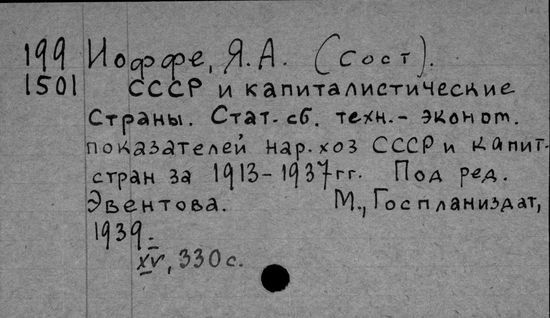 199 Иоффе, Я.А. (Сост).
1501 СССР и капиталистические
Страны. Стат. сб. техн.- эконом.
показателей нар. хоз СССР и капит-
стран за 1913-1937гг. Под ред.
Эвентова. М., Госпланиздат,
1939.-
XV, 330 с.